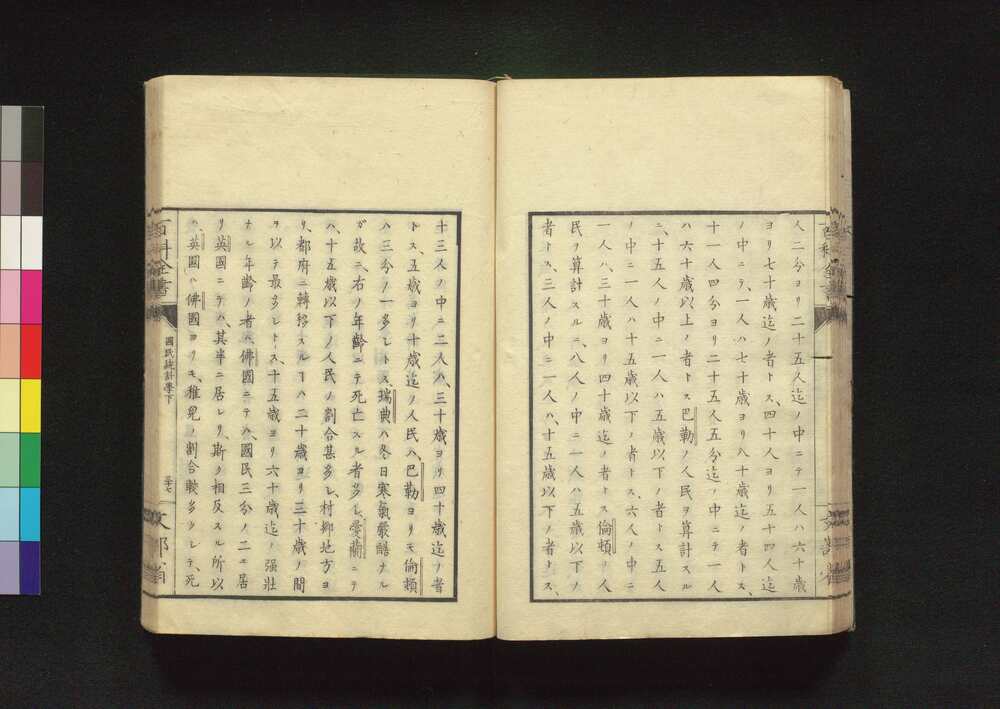 人二分ヨリ二十五人迄ノ中ニテ一人ハ六十歳
ヨリ七十歳迄ノ者トス、四十人ヨリ五十四人迄
ノ中ニテ、一人ハ七十歳ヨリ八十歳迄ノ者トス、
十一人四分ヨリ二十五人五分迄ノ中ニテ一人
ハ六十歳以上ノ者トス巴勒ノ人民ヲ算計スル
ニ、十五人ノ中ニ一人ハ五歳以下ノ者トス五人
ノ中ニ一人ハ十五歳以下ノ者トス、六人ノ中ニ
一人ハ、三十歳ヨリ四十歳迄ノ者トス倫頓ノ人
民ヲ算計スルニ、八人ノ中ニ一人ハ五歳以下ノ
者トス、三人ノ中ニ一人ハ、十五歳以下ノ者トス、
十三人ノ中ニ二人ハ、三十歳ヨリ四十歳迄ノ者
トス、五歳ヨリ十歳迄ノ人民ハ、巴勒ヨリモ倫頓
ハ三分ノ一多シトス、瑞典ハ冬日寒氣嚴酷ナル
ガ故ニ、右ノ年齡ニテ死亡スル者多シ、愛蘭ニテ
ハ、十五歳以下ノ人民ノ割合甚多シ、村鄕地方ヨ
リ、都府ニ轉移スルヿハ二十歳ヨリ三十歳ノ間
ヲ以テ最多シトス、十五歳ヨリ六十歳迄ノ强壯
ナル年齡ノ者ハ、佛國ニテハ、國民三分ノ二ニ居
リ英國ニテハ、其半ニ居レリ、斯ク相反スル所以
ハ、英國ハ佛國ヨリモ、稚兒ノ割合較多クシテ、死
百科全書
國民統計學下
三十七
文部省